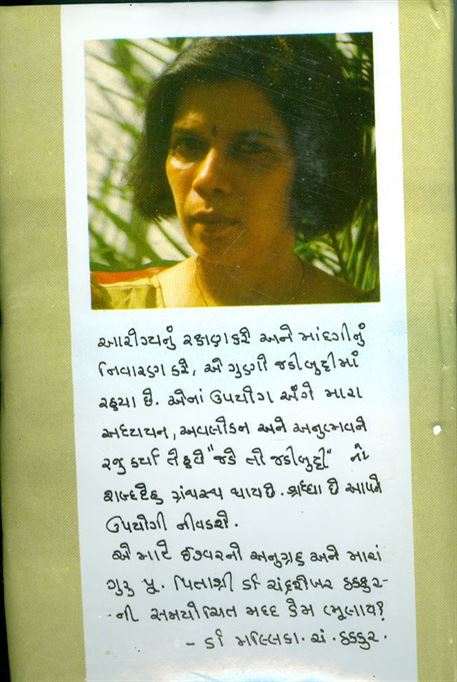 આરોગ્યનું રક્ષણ કરે અને માંદગીનું
નિવારણ કરે, એ ગુણો જડીબુટ્ટીમાં
રહ્યા છે. એનાં ઉપયોગ અંગે મારા
અધ્યયન, અવલોકન અને અનુભવને
રજુ કર્યા તે હવે "જડે તો જડીબુટ્ટી" નાં
શબ્દદેહે ગ્રંથસ્થ થાય છે. શ્રધ્ધા છે આપને
ઉપયોગી નીવડશે.
એ માટે ઈશ્વરનો અનુગ્રહ અને મારાં
ગુરુ પૂ. પિતાશ્રી ડૉ ચંદ્રશેખર ઠક્કુર-
-ની સમયોચિત મદદ કેમ ભૂલાય?
- ડૉ મલ્લિકા. ચં. ઠક્કુર.